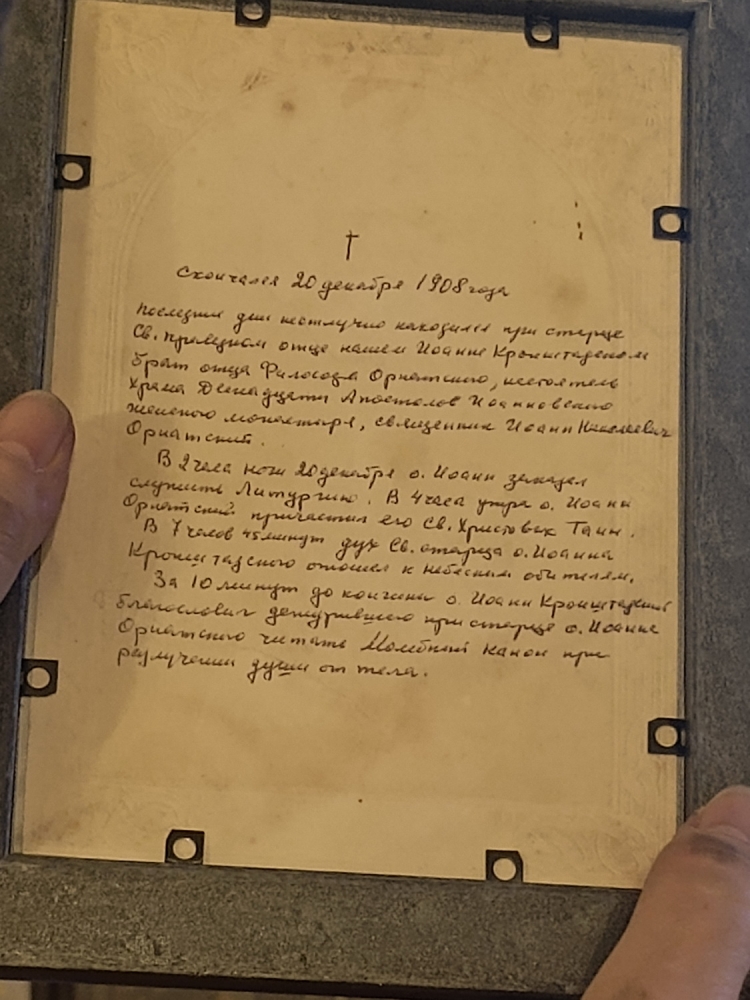 †
Скончался 20 декабря 1908 года
Последние дни неотлучно находился при старце
Св. праведном отце нашем Иоанне Кронштадском
брат отца Философа Орнатского, настоятель
храма Двенадцати Апостолов Иоанновского
женского монастыря, священник Иоанн Николаевич
Орнатский.
В 2 часа ночи 20 декабря о. Иоанн
служить Литургию. В 4 часа утра о. Иоанн
Орнатский причастил его Св. Христовых Таин.
В 7 часов 45 минут дух Св. старца о. Иоанна
Кронштадского отошел к небесным обителям.
За 10 минут до кончины о. Иоанн Кронштадский
благословил дежурившего при старце о. Иоанна
Орнатского читать Молебный канон при
разлучении души от тела.